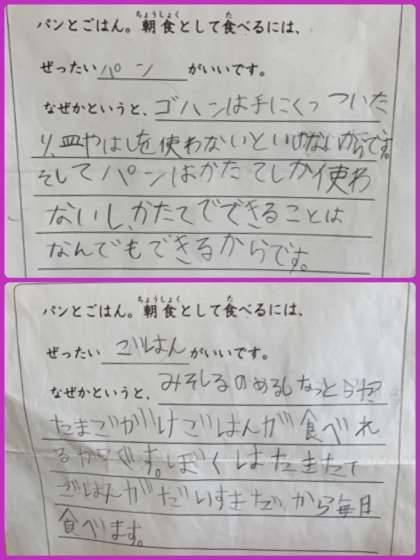 パンとごはん。朝食として食べるには、
ちょうしょく
た
ぜったいパンがいいです。
なぜかというと、ゴハンは手にくっついた
り、皿やはしを使わないといけないからです。
そしてパンはかたてしか使わ
ないし、かたてでできることは
なんでもできるからです。
パンとごはん。朝食として食べるには、
ちょうしょく
た
ぜったいごはんがいいです。
なぜかというと、みそしるのめるしなっとうや
たまごがけごはんが食べれ
るからです。ぼくはたきたて
ごはんがだいすきだから毎日
食べます。